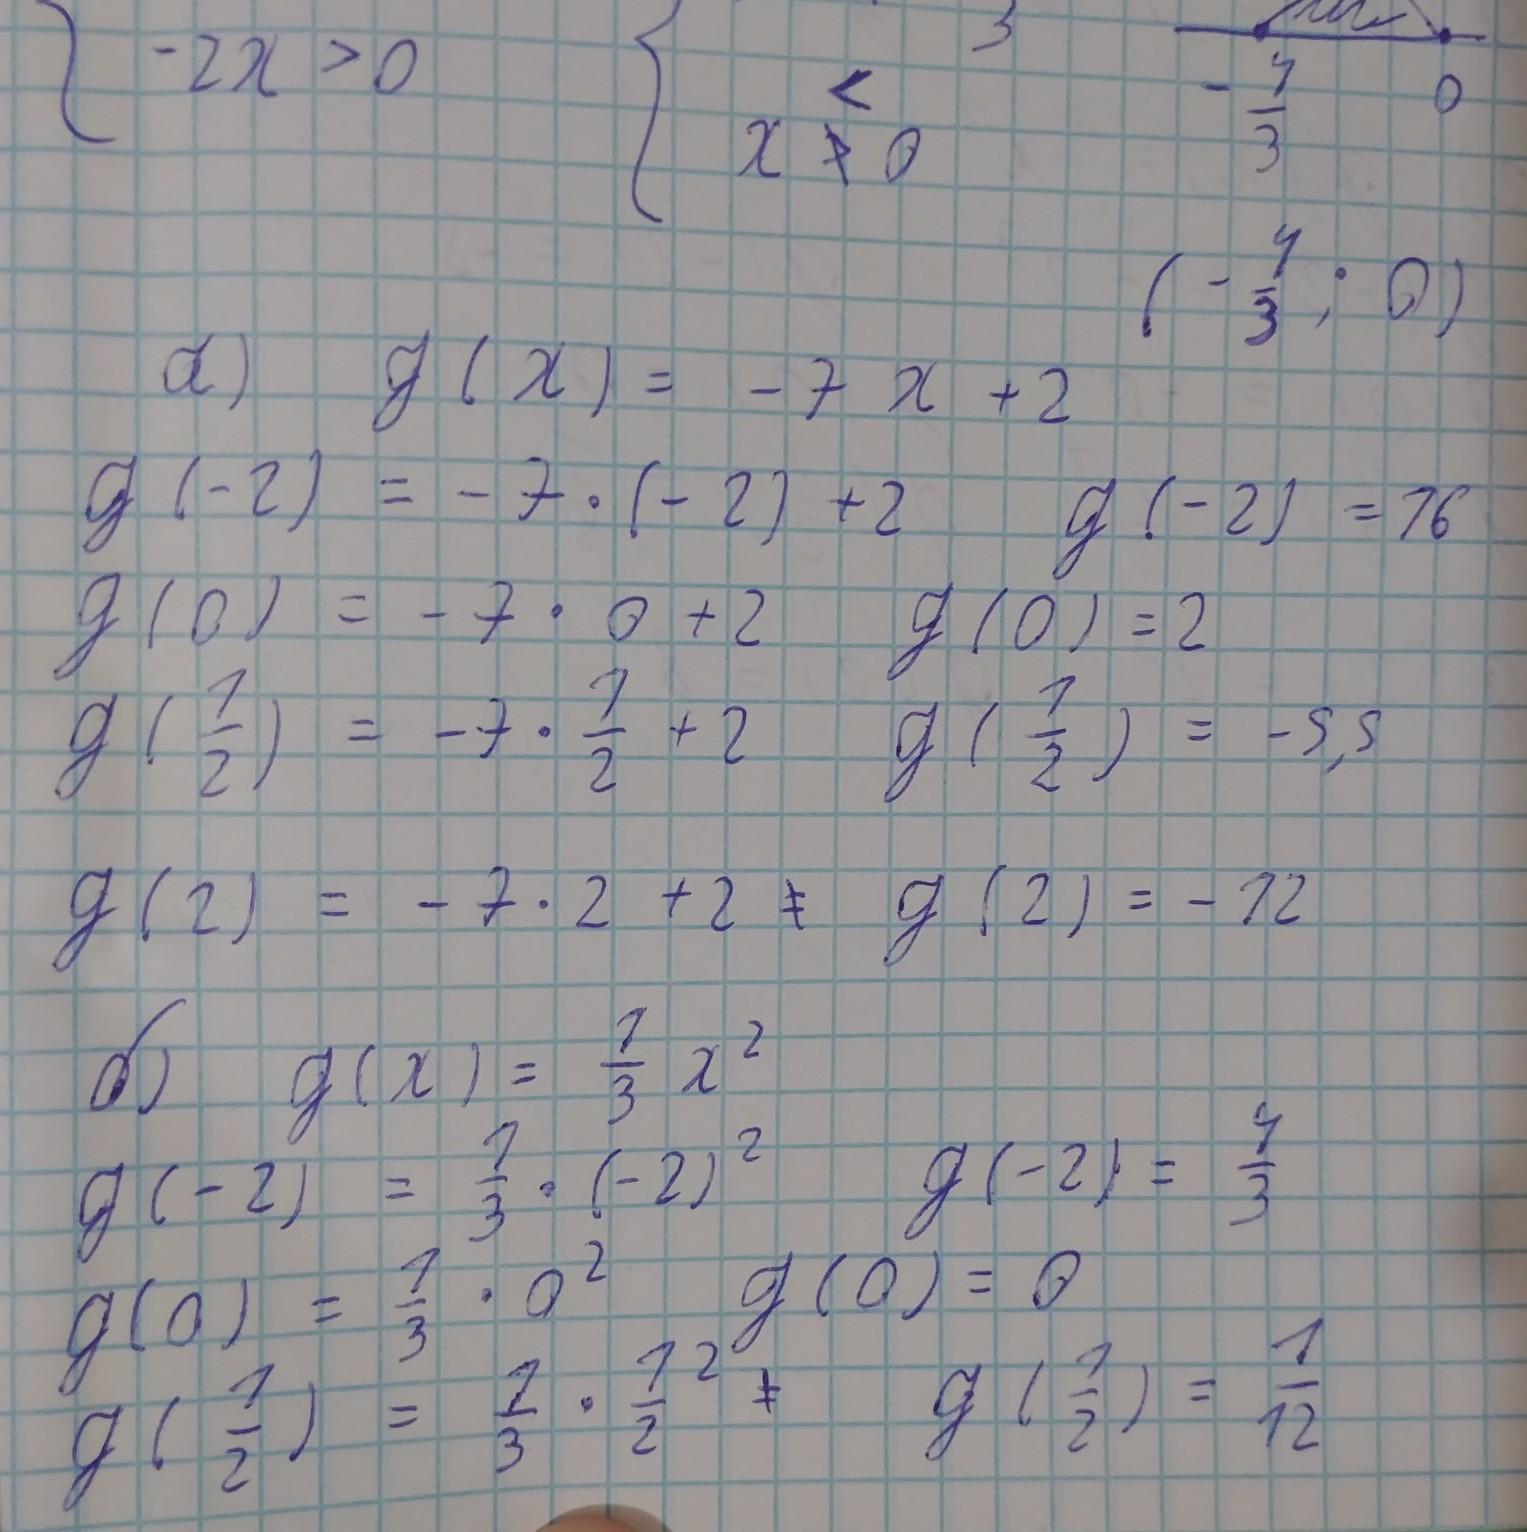 -2x > 0
3
<
x > 0
-4/3 0
(-4/3; 0)
а) g(x) = -7x + 2
g(-2) = -7 · (-2) + 2 g(-2) = 16
g(0) = -7 · 0 + 2 g(0) = 2
g(1/2) = -7 · 1/2 + 2 g(1/2) = -5,5
g(2) = -7 · 2 + 2 g(2) = -12
б) g(x) = 1/3 x²
g(-2) = 1/3 · (-2)² g(-2) = 4/3
g(0) = 1/3 · 0² g(0) = 0
g(1/2) = 1/3 · 1/2² g(1/2) = 1/12